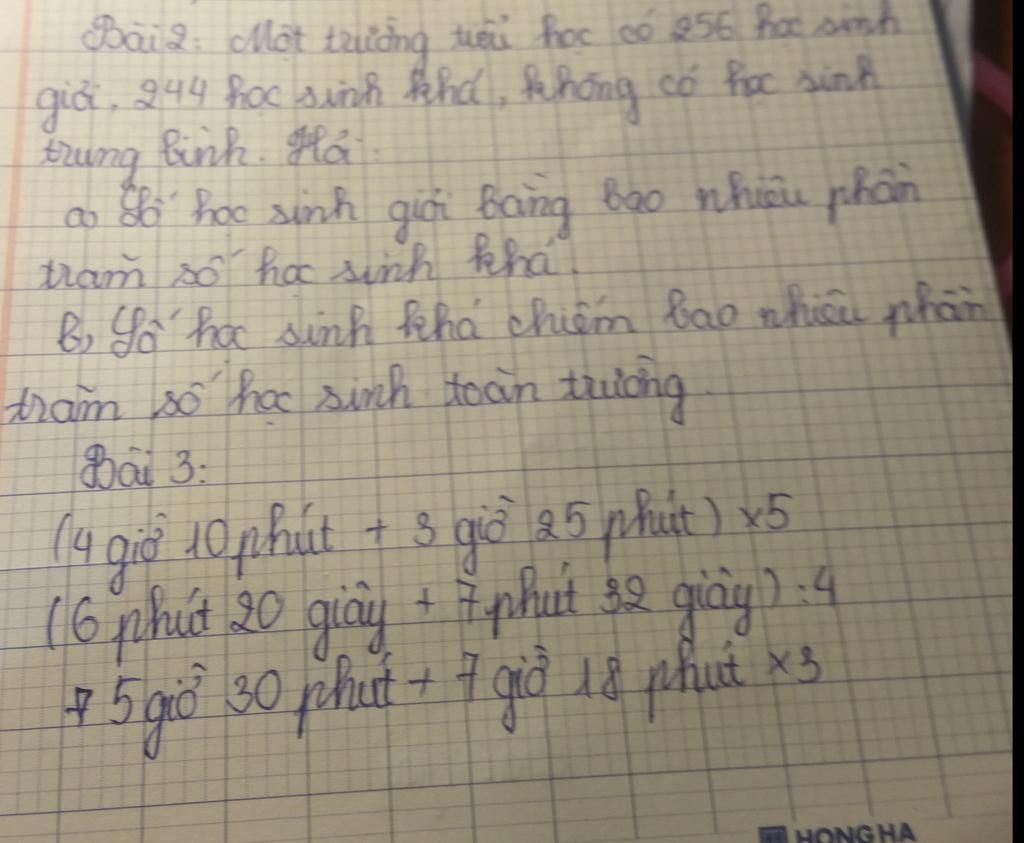 Bài 2: Một trường tiểu học có 256 học sinh
giỏi, 244 học sinh khá, không có học sinh
trung bình. Hỏi:
a) Số học sinh giỏi bằng bao nhiêu phần
trăm số học sinh khá.
b) Số học sinh khá chiếm bao nhiêu phần
trăm số học sinh toàn trường.
Bài 3:
(4 giờ 10 phút + 3 giờ 25 phút) x5
(6 phút 20 giây + 7 phút 32 giây) : 4
5 giờ 30 phút + 7 giờ 18 phút x3
HONG HA